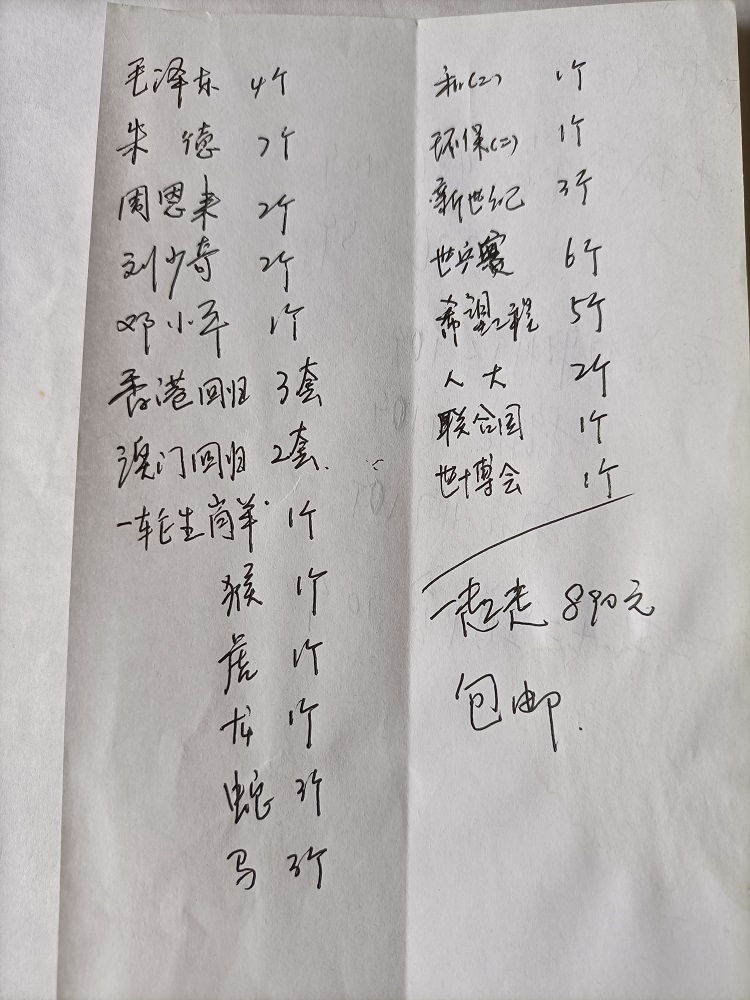 毛泽东 4个
朱 德 2个
周恩来 2个
刘少奇 2个
邓小平 1个
香港回归 3套
澳门回归 2套.
一轮生肖羊 1个
猴 1个
虎 1个
龙 1个
蛇 3个
马 3个
和(二) 1个
环保(二) 1个
新世纪 3个
世乒赛 6个
希望工程 5个
人大 2个
联合国 1个
世博会 1个
一起走 890元
包邮.